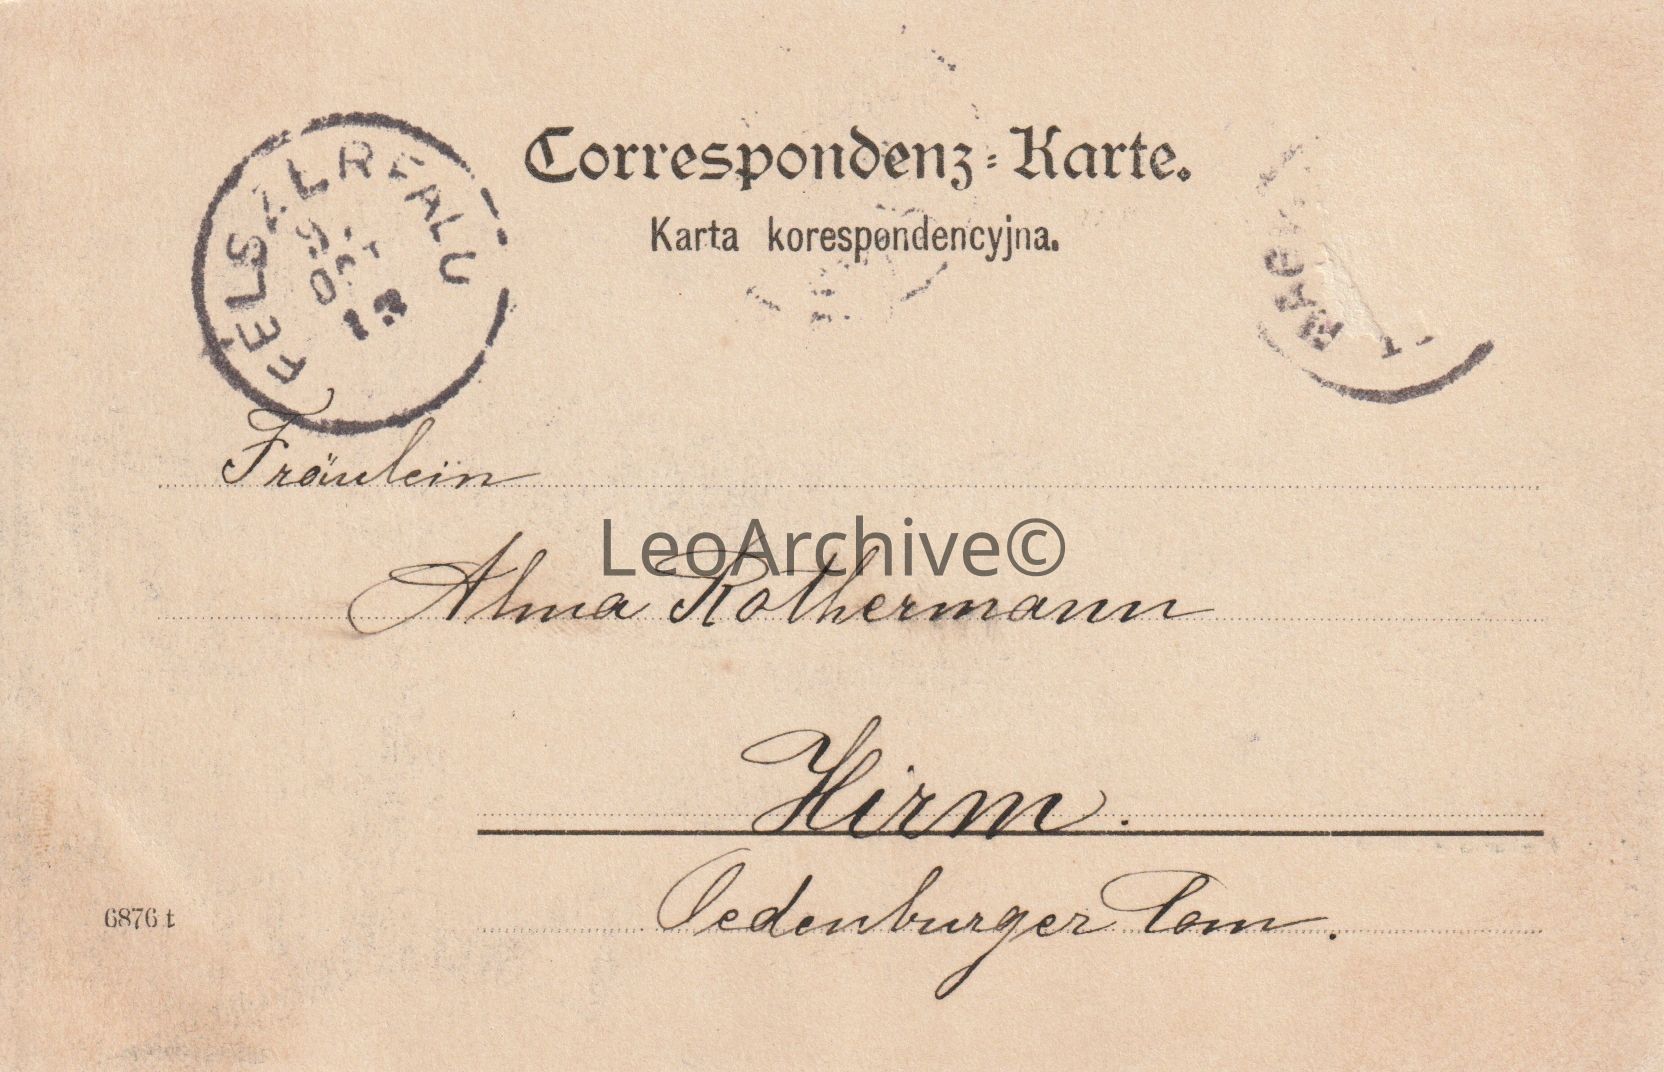 Correspondenz-Karte.
Karta korespondencyjna.
Fräulein
LeoArchive©
Alma Rothermann
Hirm.
Oedenburger Com.
6876 t